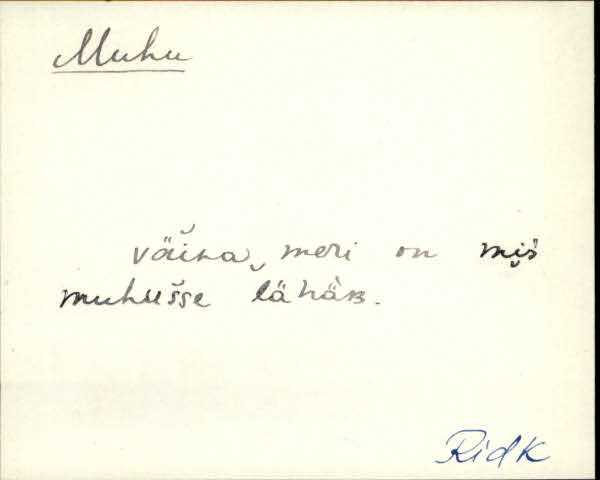 Muhu
väi̮na‿meri on mis
muhusse lähäb.
Ridk